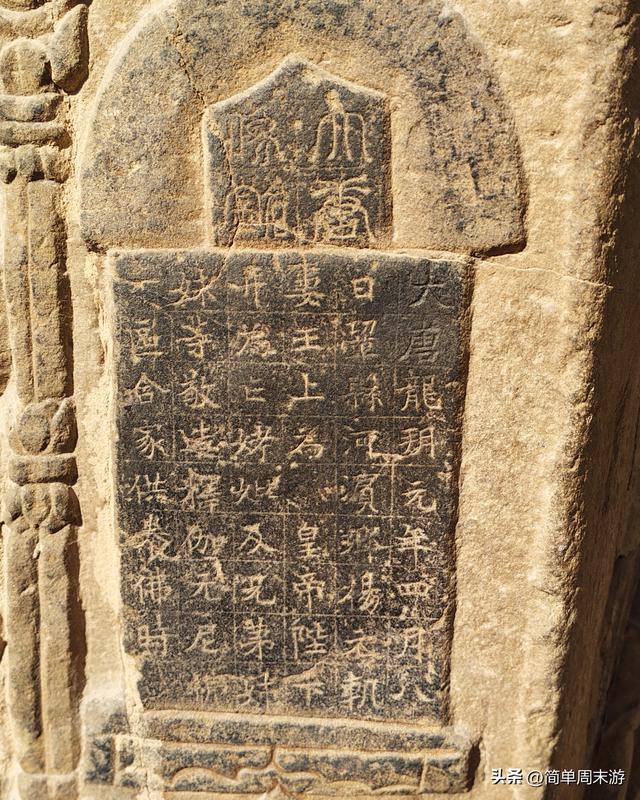 大唐
大唐龍朔元年四月八
日縣河濱鄉楊軌
妻王上為皇帝陛下
并為亡妣及兄弟姊
妹等敬造釋伽牟尼佛
一區合家供養佛時
头条 @简单周末游